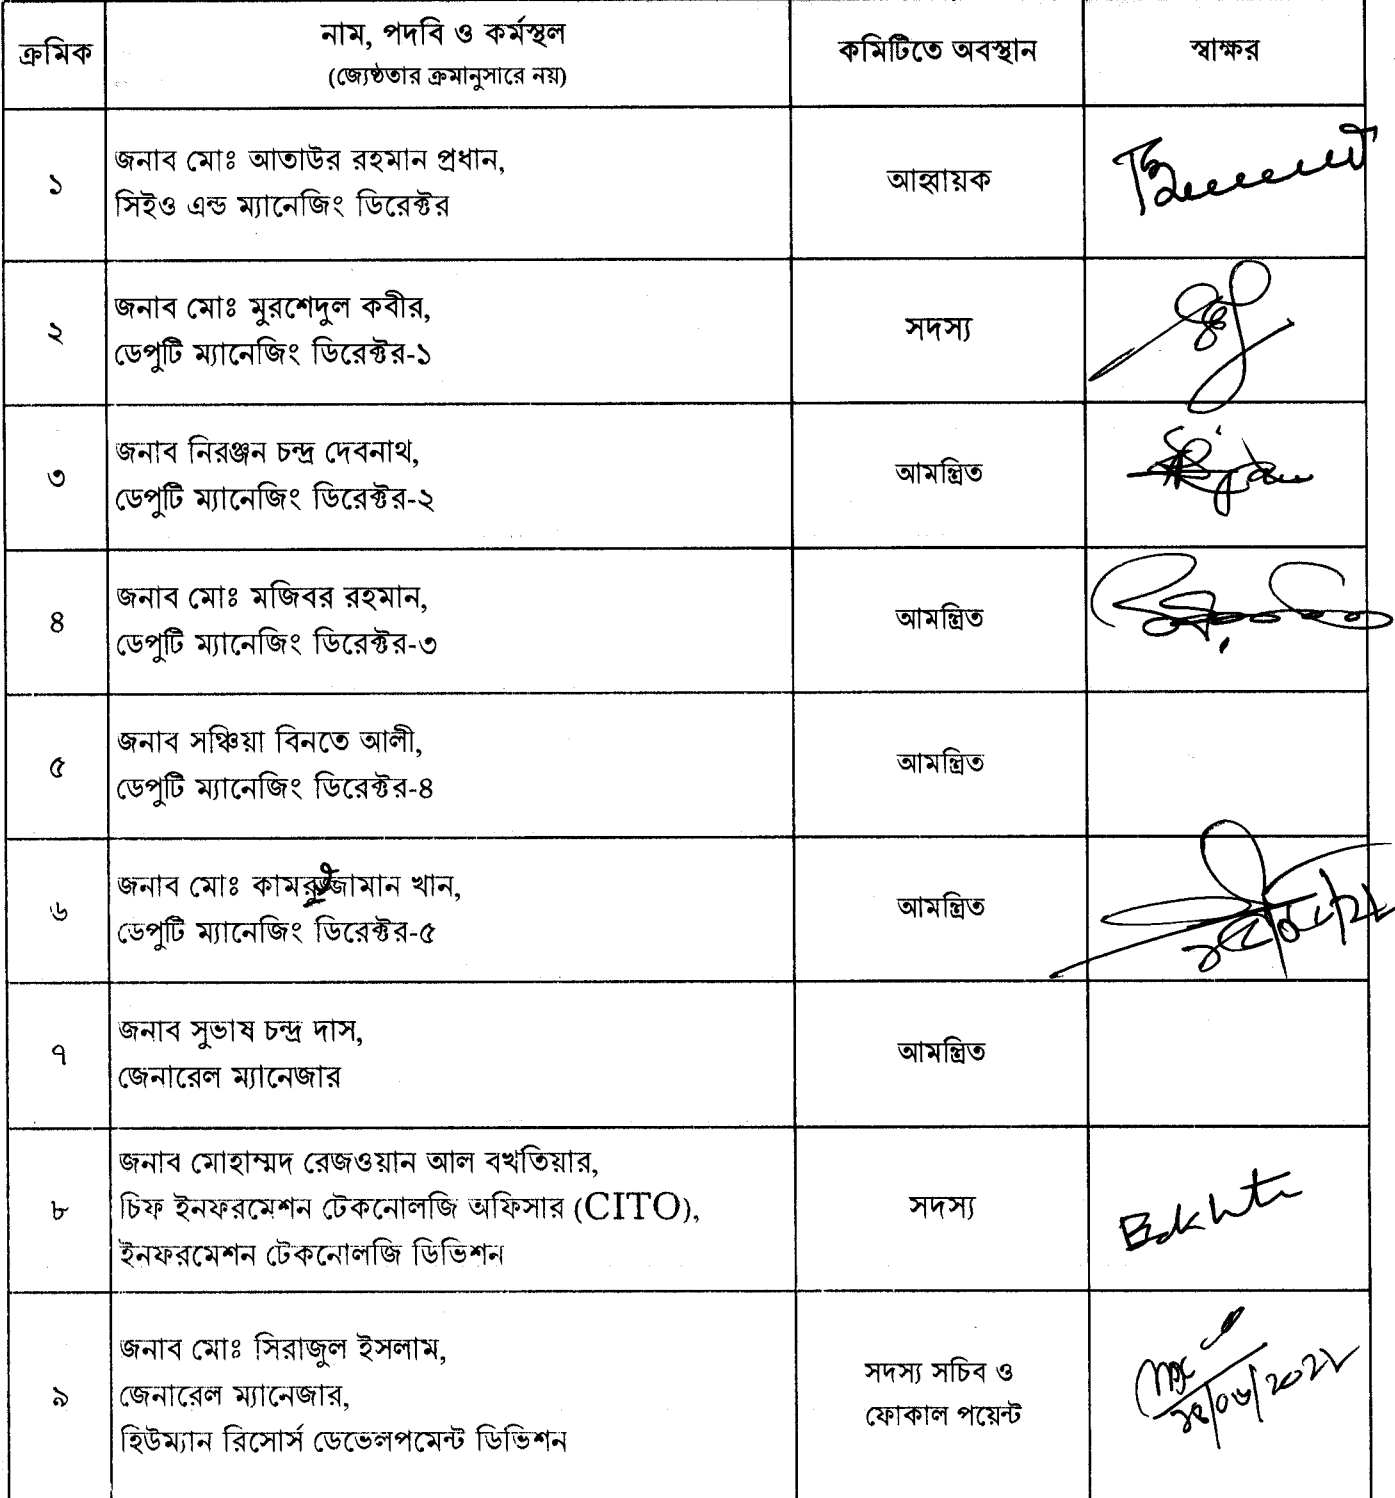 ক্রমিক
নাম, পদবি ও কর্মস্থল
(জ্যেষ্ঠতার ক্রমানুসারে নয়)
কমিটিতে অবস্থান
স্বাক্ষর
১
জনাব মোঃ আতাউর রহমান প্রধান,
সিইও এন্ড ম্যানেজিং ডিরেক্টর
আহ্বায়ক
২
জনাব মোঃ মুরশেদুল কবীর,
ডেপুটি ম্যানেজিং ডিরেক্টর-১
সদস্য
৩
জনাব নিরঞ্জন চন্দ্র দেবনাথ,
ডেপুটি ম্যানেজিং ডিরেক্টর-২
আমন্ত্রিত
৪
জনাব মোঃ মজিবর রহমান,
ডেপুটি ম্যানেজিং ডিরেক্টর-৩
আমন্ত্রিত
৫
জনাব সঞ্চিয়া বিনতে আলী,
ডেপুটি ম্যানেজিং ডিরেক্টর-৪
আমন্ত্রিত
৬
জনাব মোঃ কামরুজ্জামান খান,
ডেপুটি ম্যানেজিং ডিরেক্টর-৫
আমন্ত্রিত
৭
জনাব সুভাষ চন্দ্র দাস,
জেনারেল ম্যানেজার
আমন্ত্রিত
৮
জনাব মোহাম্মদ রেজওয়ান আল বখতিয়ার,
চিফ ইনফরমেশন টেকনোলজি অফিসার (CITO),
ইনফরমেশন টেকনোলজি ডিভিশন
সদস্য
৯
জনাব মোঃ সিরাজুল ইসলাম,
জেনারেল ম্যানেজার,
হিউম্যান রিসোর্স ডেভেলপমেন্ট ডিভিশন
সদস্য সচিব ও
ফোকাল পয়েন্ট